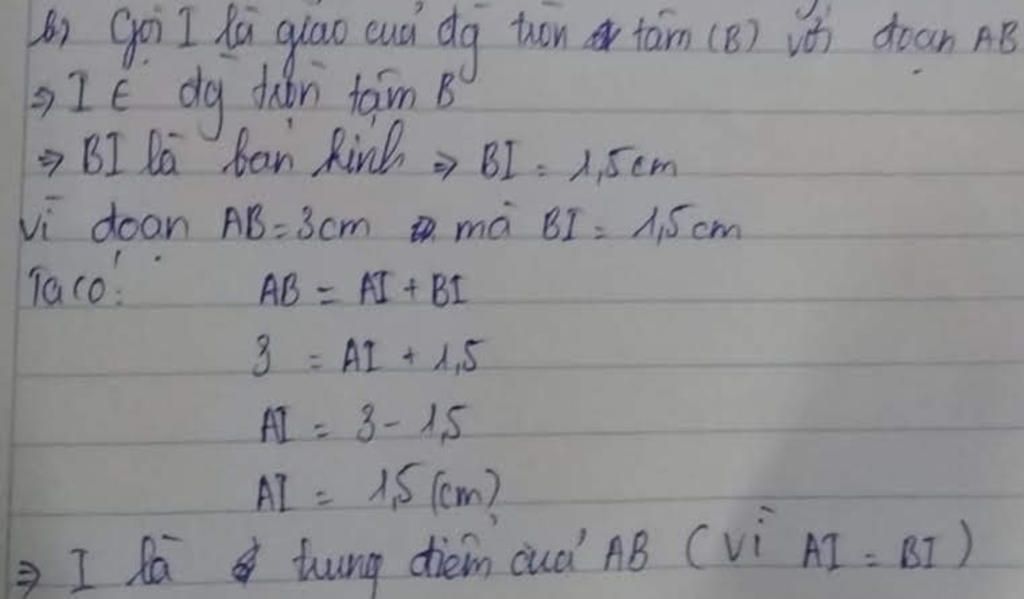 b) Gọi I là giao của đg tròn tâm (B) với đoạn AB
⇒ I ∈ đg tròn tâm B
⇒ BI là bán kính ⇒ BI = 1,5cm
Vì đoạn AB = 3cm mà BI = 1,5cm
Ta có: AB = AI + BI
3 = AI + 1,5
AI = 3 - 1,5
AI = 1,5 (cm)
⇒ I là trung điểm của AB (vì AI = BI)